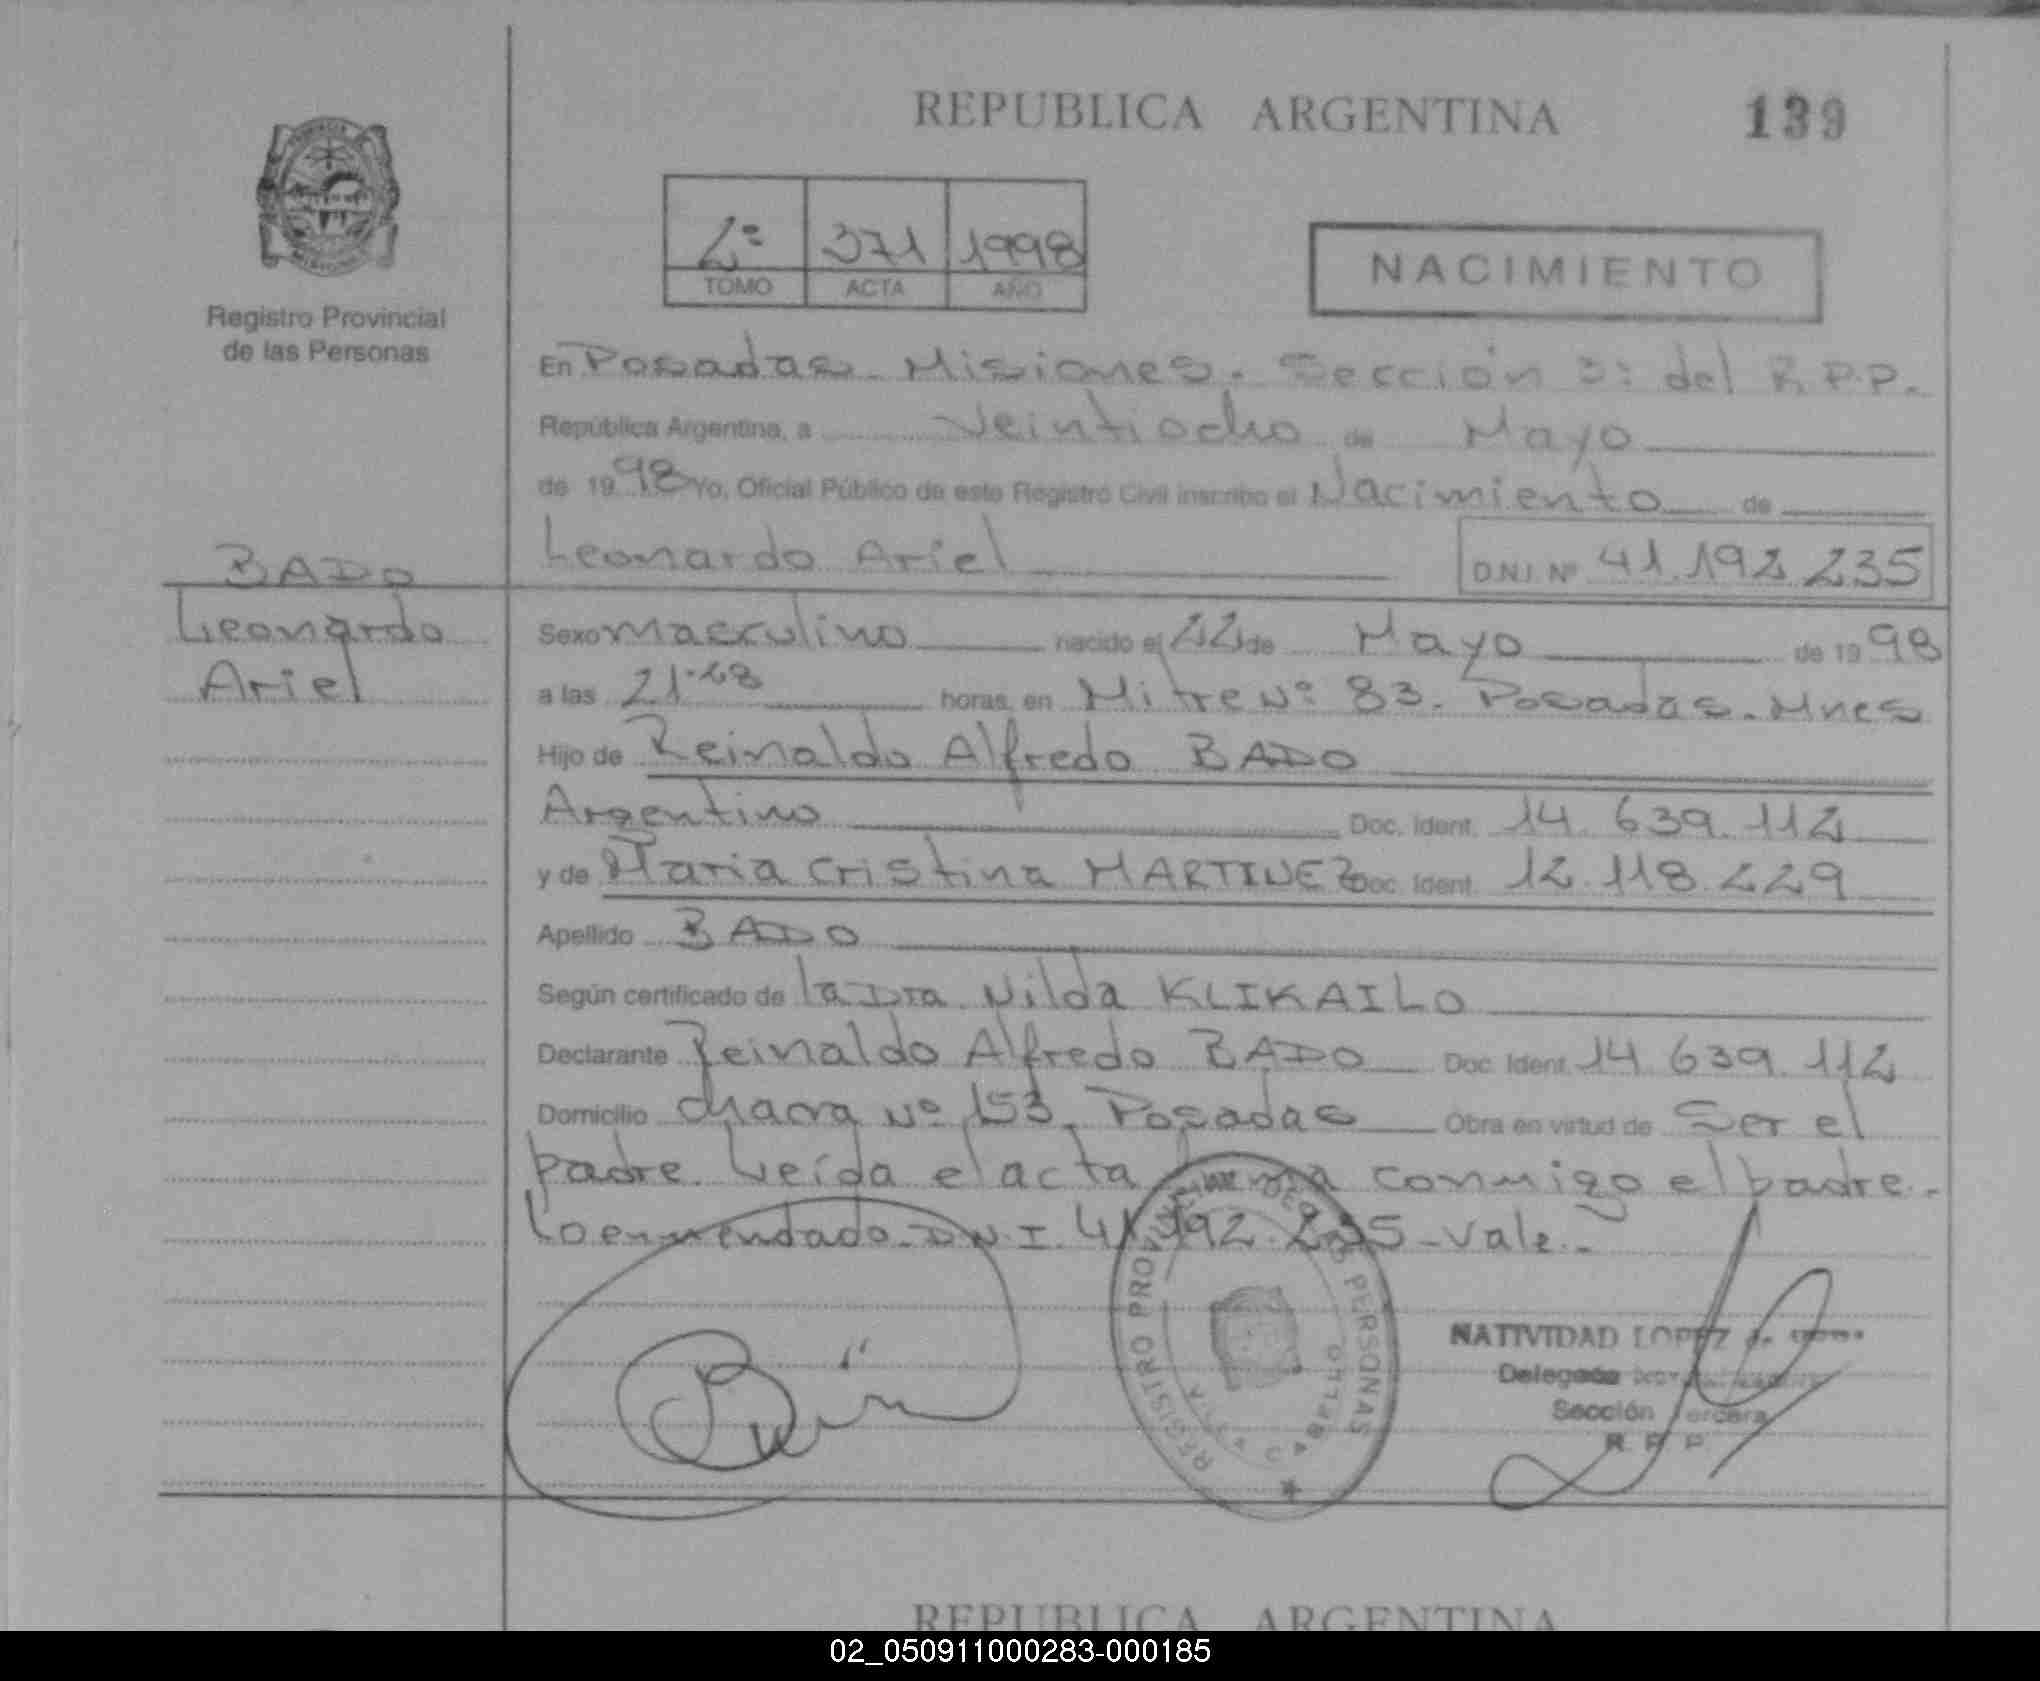 REPUBLICA ARGENTINA 139
2º 371 1998
TOMO ACTA AÑO
NACIMIENTO
Registro Provincial
de las Personas
En Posadas - Misiones. Sección 3: del R.P.P.
República Argentina, a Veintiocho de Mayo
de 1998 Yo, Oficial Público de este Registro Civil inscribo el Nacimiento de
BADO
Leonardo
Ariel
Leonardo Ariel D.N.I. Nº 41.192.235
Sexo masculino nacido el 22 de Mayo de 1998
a las horas, en Mitre Nº 83. Posadas. Mnes
Hijo de Reinaldo Alfredo BADO
Argentino Doc. Ident. 14.639.112
y de Maria Cristina MARTINEZ Doc. Ident. 12.118.229
Apellido BADO
Según certificado de la Dra. Nilda KLIKAILO
Declarante Reinaldo Alfredo BADO Doc. Ident. 14.639.112
Domicilio chacra Nº 153. Posadas Obra en virtud de Ser el
padre. Leída el acta firma conmigo el padre.-
Lo enmendado - D.N.I. 41.192.235 - Vale.-
REGISTRO PROVINCIAL DE LAS PERSONAS
NATIVIDAD LOPEZ de
Delegada
Sección Tercera
R. P. P.
REPUBLICA ARGENTINA
02_050911000283-000185